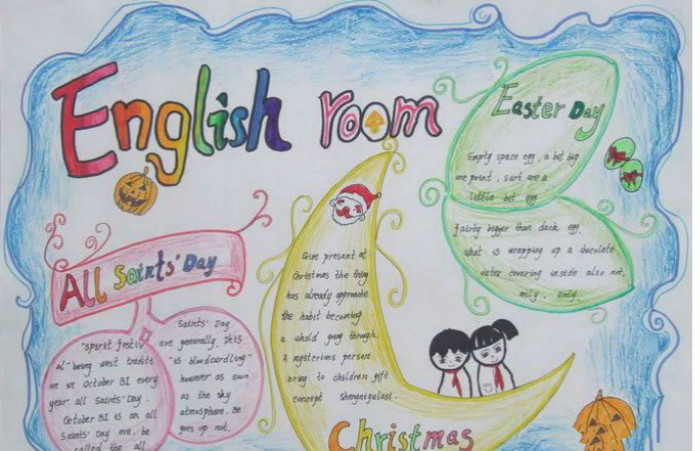 English room
Easter Day
Empty space egg, a bit big
one point, sort are a
little bit egg
fairly bigger than duck egg,
what is wrapping up a chocolate
outer covering inside also not,
only, only.
All Saints' Day
"spirit festiv
al" being west tradits
on in October 31 every
year all Saints' Day.
October 31 is on all
Saints' Day eve. be
called the all
Saints' Day
eve generally, this
"is bloodcurdling"
however as soon
as the sky
atmosphere. Be
goes up not.
Give present at
Christmas the thing
has already approximate
the habit becoming
a whold going through.
A mysterious person
bring to children gift
concept
Christmas